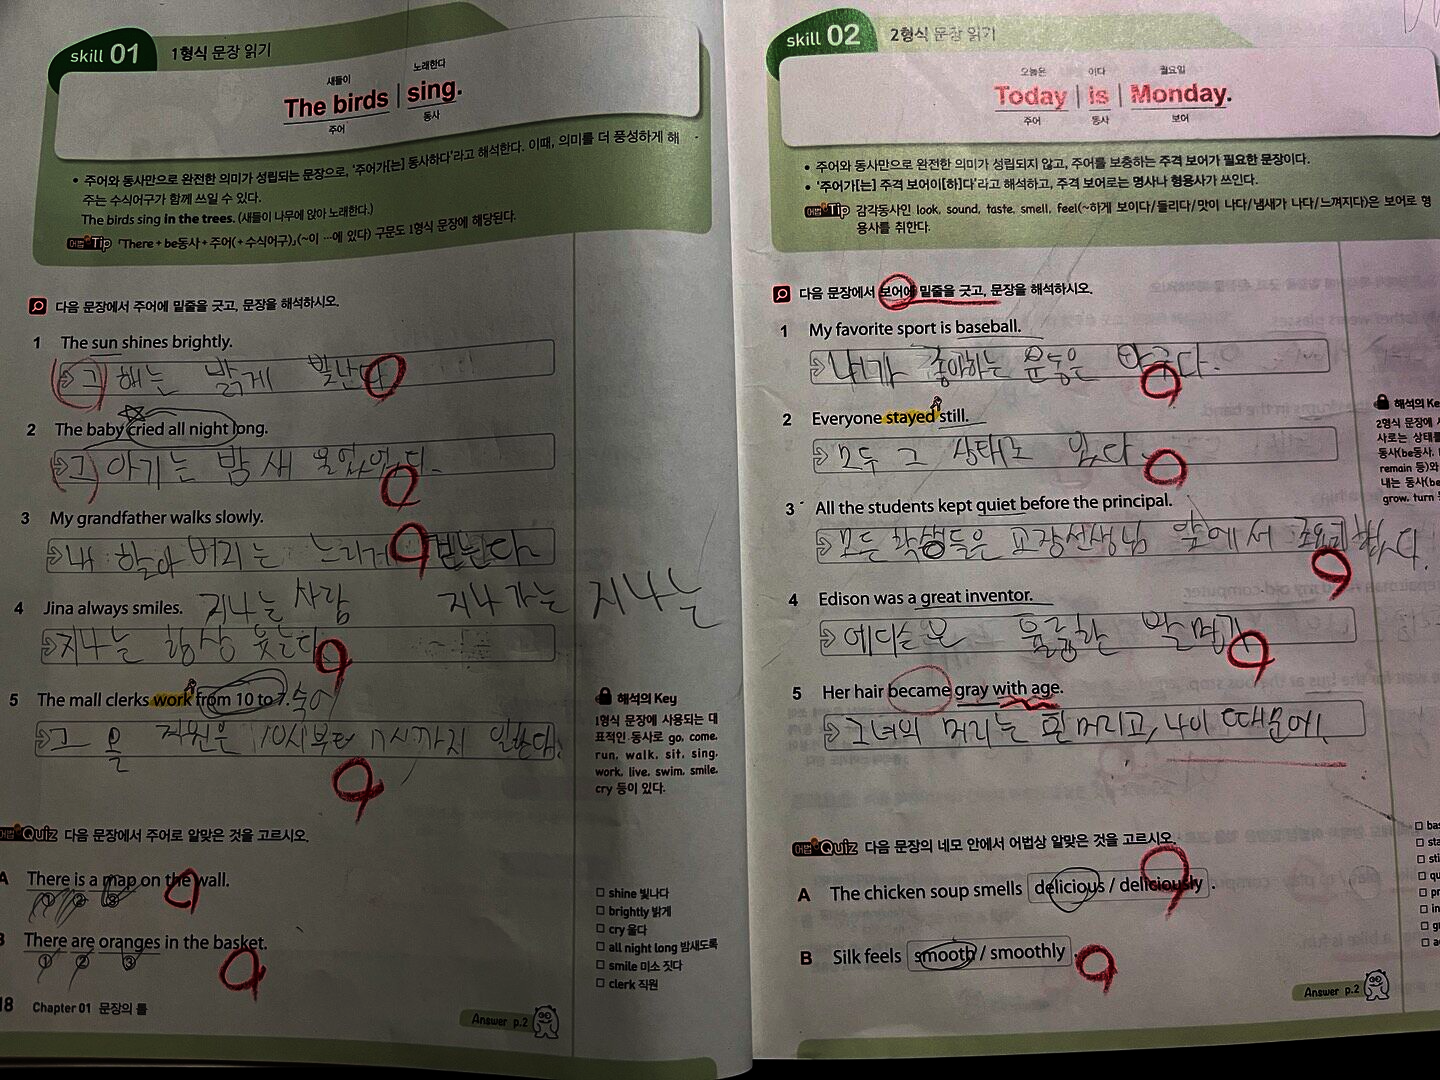 skill 01 1형식 문장 읽기
새들이 노래한다
The birds | sing.
주어 동사
• 주어와 동사만으로 완전한 의미가 성립되는 문장으로, '주어가[는] 동사하다'라고 해석한다. 이때, 의미를 더 풍성하게 해
주는 수식어구가 함께 쓰일 수 있다.
The birds sing in the trees. (새들이 나무에 앉아 노래한다.)
어법 Tip 「There + be동사 + 주어(+ 수식어구)」(~이 …에 있다) 구문도 1형식 문장에 해당된다.
다음 문장에서 주어에 밑줄을 긋고, 문장을 해석하시오.
1 The sun shines brightly.
그 해는 밝게 빛난다
2 The baby cried all night long.
그 아기는 밤새 울었다.
3 My grandfather walks slowly.
내 할아버지는 느리게 걷는다
4 Jina always smiles. 지나는 사람 지나가는 지나는
지나는 항상 웃는다
5 The mall clerks work from 10 to 7.
그 몰 직원은 10시부터 시까지 일한다.
해석의 Key
1형식 문장에 사용되는 대
표적인 동사로 go, come,
run, walk, sit, sing,
work, live, swim, smile,
cry 등이 있다.
어법 Quiz 다음 문장에서 주어로 알맞은 것을 고르시오.
A There is a map on the wall.
① ② ③
B There are oranges in the basket.
① ② ③
□ shine 빛나다
□ brightly 밝게
□ cry 울다
□ all night long 밤새도록
□ smile 미소 짓다
□ clerk 직원
18 Chapter 01 문장의 틀
Answer p.2
skill 02 2형식 문장 읽기
오늘은 이다 월요일
Today | is | Monday.
주어 동사 보어
• 주어와 동사만으로 완전한 의미가 성립되지 않고, 주어를 보충하는 주격 보어가 필요한 문장이다.
• '주어가[는] 주격 보어이[하]다'라고 해석하고, 주격 보어로는 명사나 형용사가 쓰인다.
어법 Tip 감각동사인 look, sound, taste, smell, feel(~하게 보이다/들리다/맛이 나다/냄새가 나다/느껴지다)은 보어로 형
용사를 취한다.
다음 문장에서 보어에 밑줄을 긋고, 문장을 해석하시오.
1 My favorite sport is baseball.
내가 좋아하는 운동은 야구다.
2 Everyone stayed still.
모두 그 상태로 있다
3 All the students kept quiet before the principal.
모든 학생들은 교장선생님 앞에서 조요히 했다.
4 Edison was a great inventor.
에디슨은 훌륭한 발명가
5 Her hair became gray with age.
그녀의 머리는 흰머리고, 나이 때문에.
해석의 Ke
2형식 문장에
사로는 상태를
동사(be동사,
remain 등)와
내는 동사(be
grow, turn
어법 Quiz 다음 문장의 네모 안에서 어법상 알맞은 것을 고르시오.
A The chicken soup smells delicious / deliciously .
B Silk feels smooth / smoothly .
Answer p.2